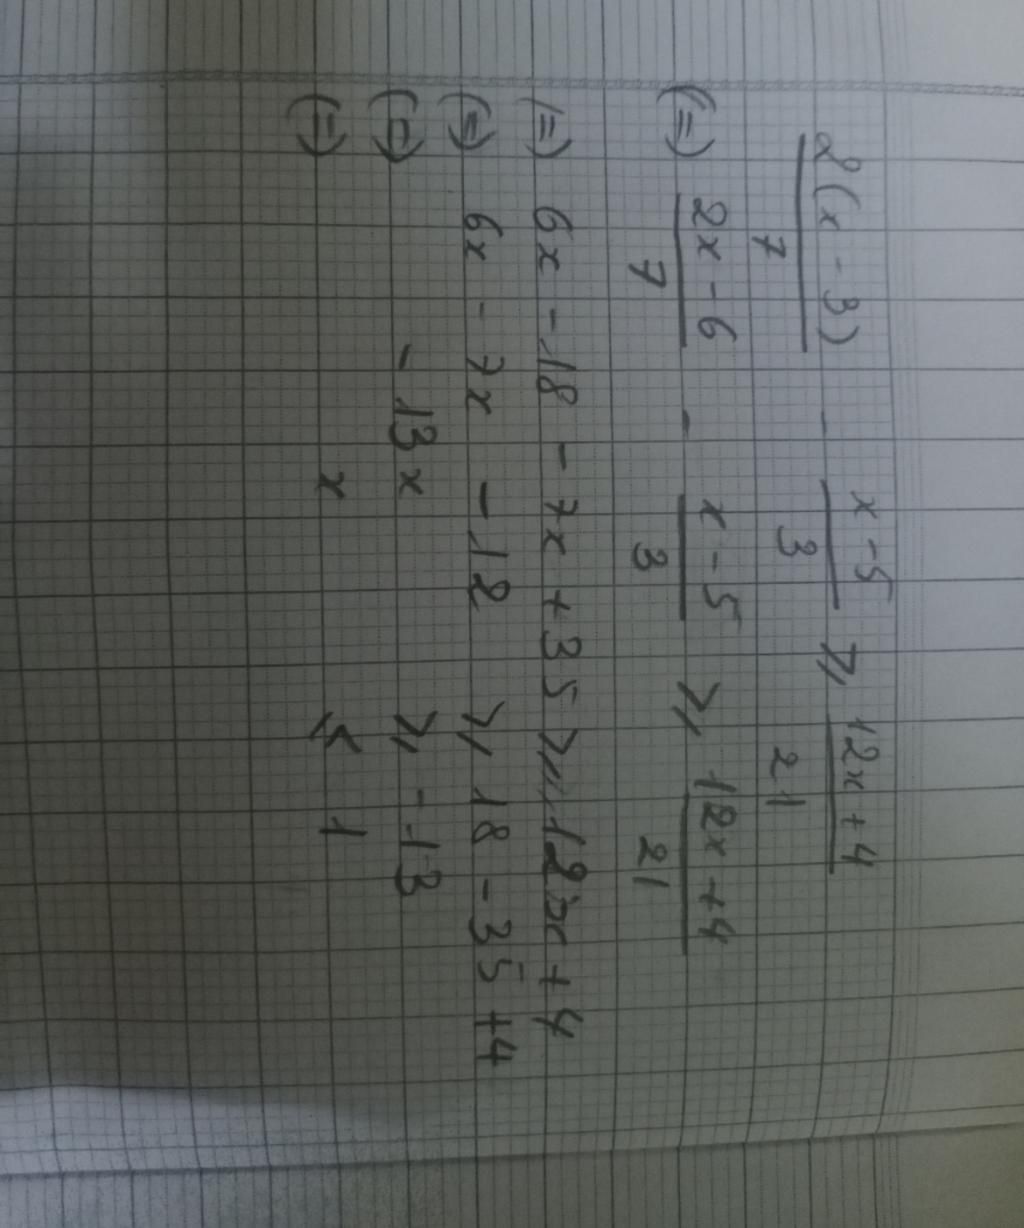 2(x-3)/7 - x-5/3 ⩾ 12x+4/21
(=) 2x-6/7 - x-5/3 ⩾ 12x+4/21
(=) 6x - 18 - 7x + 35 ⩾ 12x + 4
(=) 6x - 7x - 12 ⩾ 18 - 35 + 4
(=) - 13x ⩾ - 13
(=) x ⩽ 1